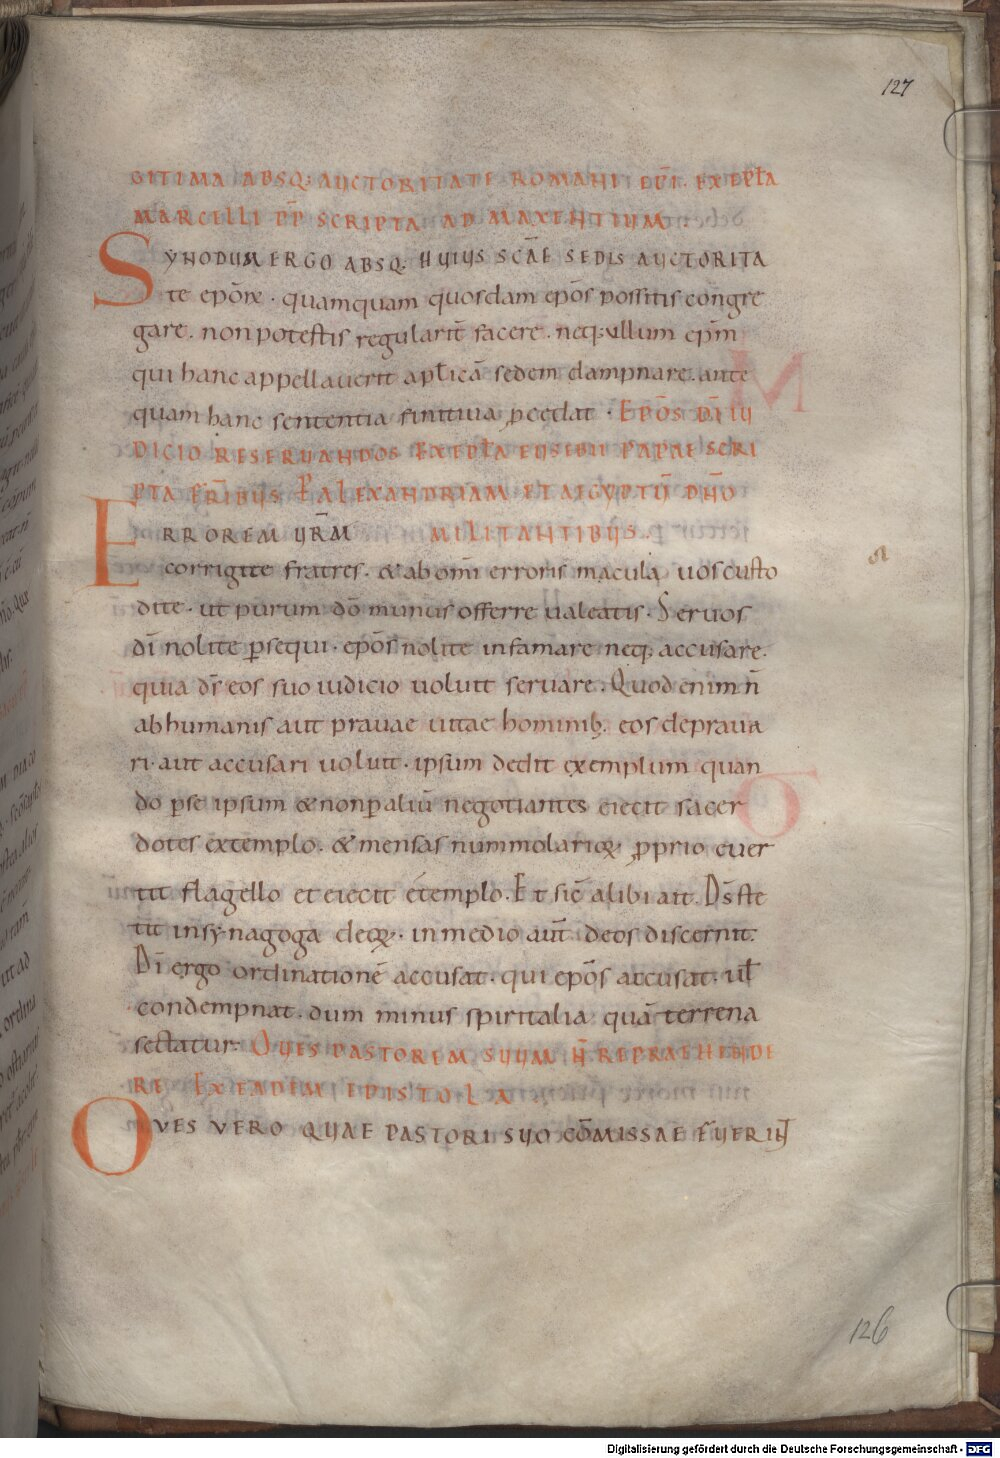 127
GITIMA ABSQ: AUCTORITATE ROMANI EP̅I. EX EPL̅A
MARCELLI P̅P SCRIPTA AD MAXENTIUM.
SYNODUM ERGO ABSQ: HUIUS SC̅AE SEDIS AUCTORITA
te epo̅ꝝ · quamquam quosdam epo̅s possitis congre
gare. non potestis regularit̅ facere. neq: ullum ep̅m
qui hanc appellaverit apl̅ica̅ sedem dampnare. ante
quam hanc sententia finitiva p̲cedat · EPO̅S DI̅ IU
DICIO RESERUANDOS EX EPL̅A EUSEBII PAPAE SCRI
PTA FR̅IBUS P̲ ALEXANDRIAM ET AEGYPTU̅ DN̅O
ERROREM UR̅M MILITANTIBUS.
corrigite fratres. & ab omi̅ erroris macula vos custo
dite · ut purum do̅ munus offerre valeatis. Servos
di̅ nolite p̲sequi · epo̅s nolite infamare neq: accusare.
quia ds̅ eos suo iudicio voluit servare. Quod enim n̅
ab humanis aut pravae vitae hominib; eos deprava
ri · aut accusari voluit · ipsum dedit exemplum quan
do p̲ se ipsum & non p̲ aliu̅ negotiantes eiecit sacer
dotes extemplo. & mensas nummolarioꝝ p̲prio ever
tit flagello et eiecit etemplo. Et sic̅ alibi ait. Ds̅ ste
tit in synagoga deoꝝ · in medio aut̅ deos discernit.
Di̅ ergo ordinatione̅ accusat · qui epo̅s accusat · vl̅
condempnat · dum minus spiritalia qua̅ terrena
sectatur. OVES PASTOREM SUUM N̅ REPRAEHENDE
RE EX EADEM EPISTOLA
OVES VERO QUAE PASTORI SUO CO̅MISSAE FUERINT
126
Digitalisierung gefördert durch die Deutsche Forschungsgemeinschaft - DFG